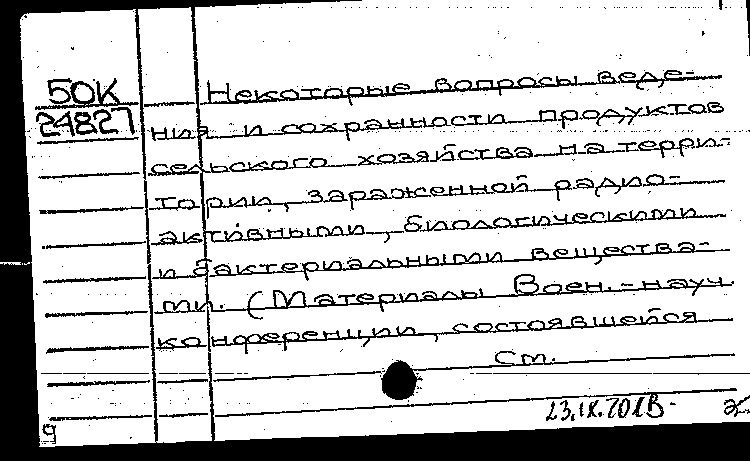 50К Некоторые вопросы веде-
24827 ния и сохранности продуктов
сельского хозяйства на терри-
тории, зараженной радио-
активными, биологическими
и бактериальными вещества-
ми. (Материалы Воен.-науч
конференции, состоявшейся
См.